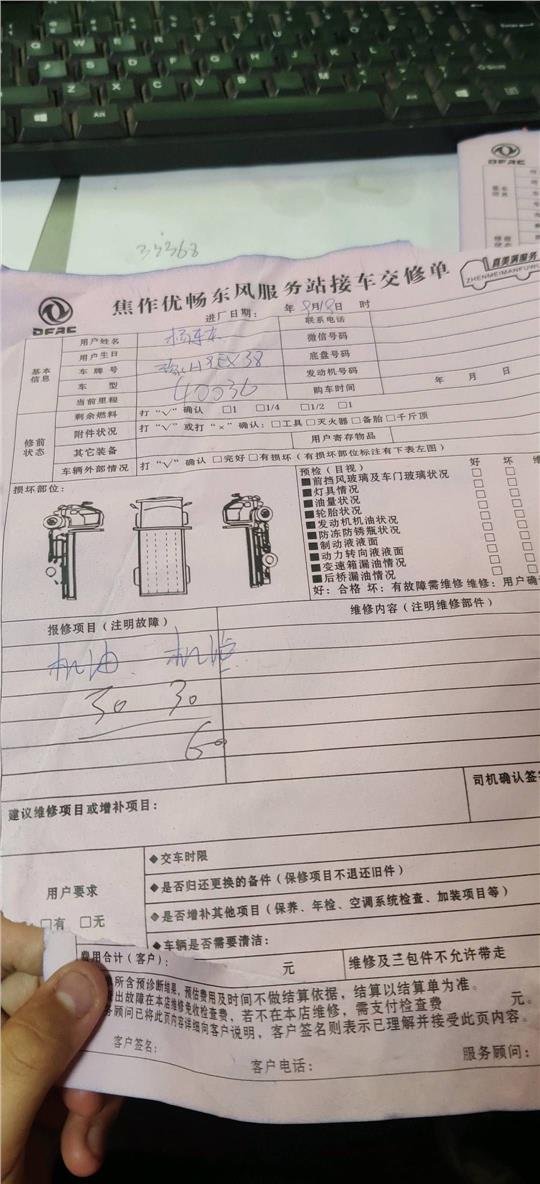 Alt
35368
DFAC
DFAC
焦作优畅东风服务站接车交修单
真美满服务
ZHENMEIMANFUWU
进厂日期： 年8月18日 时
基本信息
用户姓名
联系电话
用户生日
微信号码
车牌号 38
底盘号码
车型
发动机号码
当前里程 40036
购车时间 年 月 日
修前状态
剩余燃料 打“√”确认 □1 □1/4 □1/2 □1
附件状况 打“√”或打“×”确认：□工具□灭火器□备胎□千斤顶
其它装备
用户寄存物品
车辆外部情况 打“√”确认 □完好□有损坏（有损坏部位标注有下表左图）
损坏部位：
预检（目视） 好 坏 维
■前挡风玻璃及车门玻璃状况 □ □
■灯具情况 □ □
■油量状况 □ □
■轮胎状况 □ □
■发动机机油状况 □ □
■防冻防锈瓶状况 □ □
■制动液液面 □ □
■动力转向液液面 □ □
■变速箱漏油情况 □ □
■后桥漏油情况 □ □
好：合格 坏：有故障需维修 维修：用户确
报修项目（注明故障）
维修内容（注明维修部件）
机油 机滤
30 30
60
建议维修项目或增补项目：
司机确认签
用户要求
□有 □无
◆交车时限
◆是否归还更换的备件（保修项目不退还旧件）
◆是否增补其他项目（保养、年检、空调系统检查、加装项目等）
◆车辆是否需要清洁：
费用合计（客户）： 元
维修及三包件不允许带走
所含预诊断结果，预估费用及时间不做结算依据，结算以结算单为准。
出故障在本店维修免收检查费，若不在本店维修，需支付检查费 元。
务顾问已将此页内容详细向客户说明，客户签名则表示已理解并接受此页内容。
客户签名：
客户电话：
服务顾问：